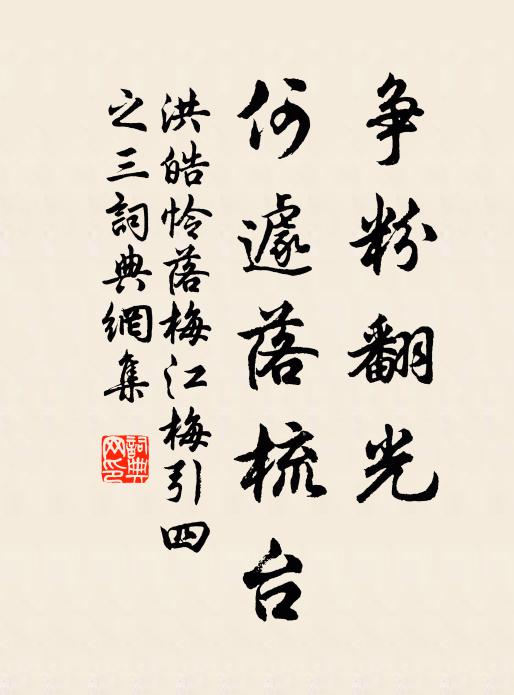 争粉翻光
何遽落梳台
洪皓怜落梅江梅引四
之三詞典網集
詞典网印